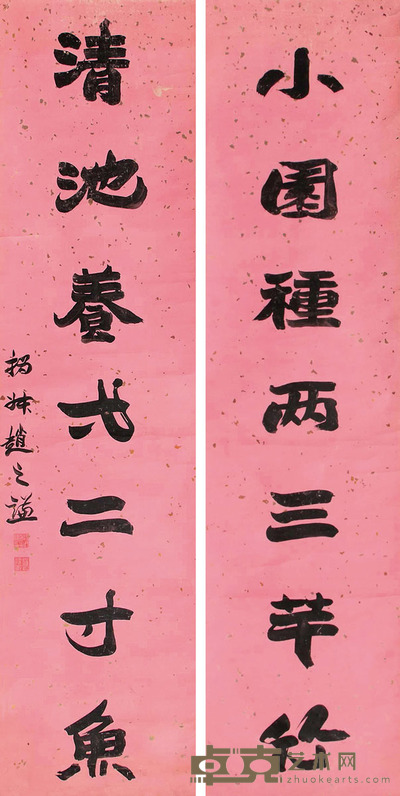 小園種两三芉竹
清池養弌二寸魚
撝叔趙之謙
卓克艺术网
zhuokearts.com